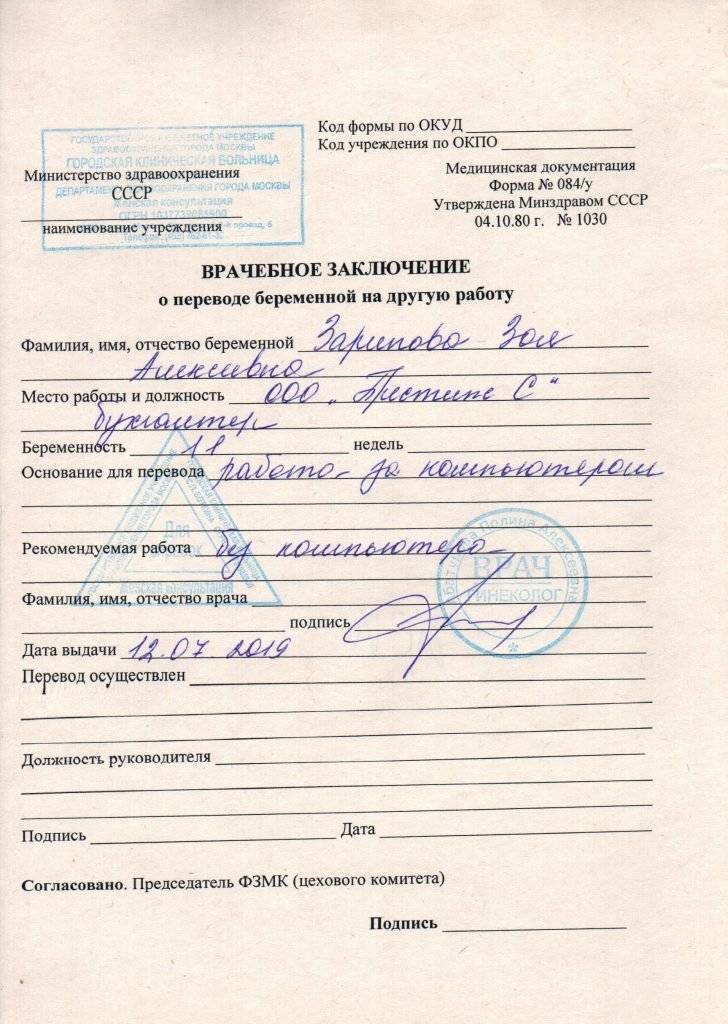 Код формы по ОКУД
Код учреждения по ОКПО
ГОСУДАРСТВЕННОЕ БЮДЖЕТНОЕ УЧРЕЖДЕНИЕ
ЗДРАВООХРАНЕНИЯ ГОРОДА МОСКВЫ
ГОРОДСКАЯ КЛИНИЧЕСКАЯ БОЛЬНИЦА
ДЕПАРТАМЕНТА ЗДРАВООХРАНЕНИЯ ГОРОДА МОСКВЫ
Женская консультация
ОГРН
Министерство здравоохранения
СССР
наименование учреждения
Медицинская документация
Форма № 084/у
Утверждена Минздравом СССР
04.10.80 г. № 1030
ВРАЧЕБНОЕ ЗАКЛЮЧЕНИЕ
о переводе беременной на другую работу
Фамилия, имя, отчество беременной Зарипова Зоя
Алексевна
Место работы и должность ООО „Престиж С"
бухгалтер
Беременность 11 недель
Основание для перевода работа за компьютером
Для
Женская консультация
Рекомендуемая работа без компьютера
Полина Алексеевна
ВРАЧ
ГИНЕКОЛОГ
Фамилия, имя, отчество врача
подпись
Дата выдачи 12.07.2019
Перевод осуществлен
Должность руководителя
Подпись Дата
Согласовано. Председатель ФЗМК (цехового комитета)
Подпись